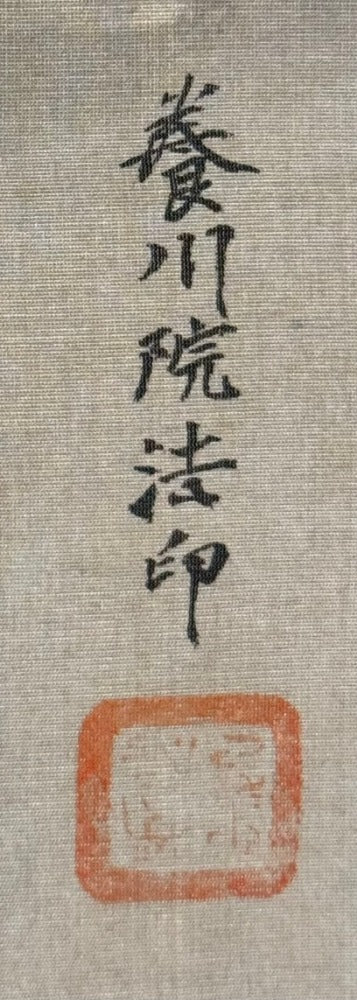 養川院法印